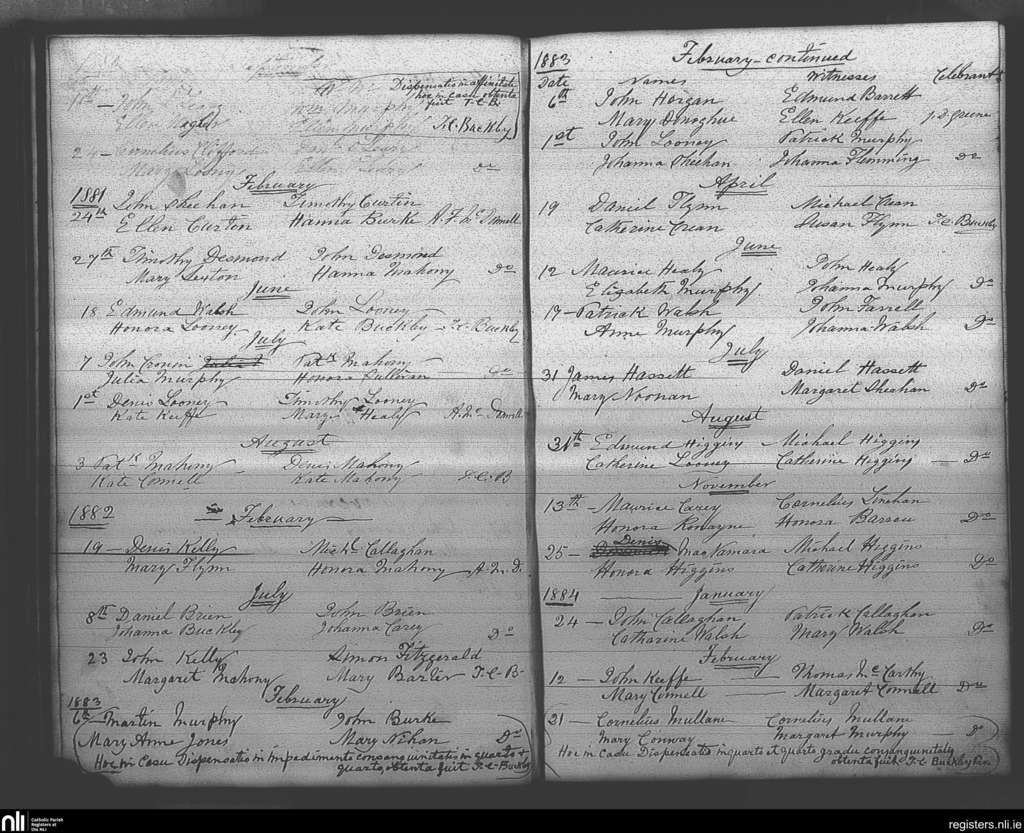 September
Dispensatio in affinitate
hoc in casu obtenta
fuit T.C.B.
11th — John
Ellen
T.C. Buckby
2 — Cornelius Clifford
Mary Looney
Do
February
1881
24th John Sheehan Timothy Curtin
Ellen Curton Hannia Burke
27th Timothy Desmond John Desmond
Mary Sexton Hanna Mahony Do
June
18 Edmund Walsh John Looney
Honora Looney Kate Buckby T.C. Buckby
July
7 John Cronin Patk Mahony
Julia Murphy Honora Sullivan Do
1st Denis Looney Timothy Looney
Kate Keeffe Mary Healy
August
3 Patk Mahony Denis Mahony
Kate Connell Kate Mahony T.C.B
1882 February
19 — Denis Kelly Michl Callaghan
Mary Flynn Honora Mahony A. M. D.
July
8th Daniel Brien John Brien
Johanna Buckley Johanna Carey Do
23 John Kelly Simon Fitzgerald
Margaret Mahony Mary Barter T.C-B-
1883 February
6th — Martin Murphy John Burke
Mary Anne Jones Mary Nihan Do
Hoc in Casu Dispensatio in impedimento consanguinitatis in quarto &
quarto, obtenta fuit T.C-Buckby
1883 February — continued
Date Names Witnesses Celebrant
6th John Horgan Edmund Barrett
Mary Donoghue Ellen Keeffe J.D. Greene
1st John Looney Patrick Murphy
Johanna Sheehan Johanna Flemming Do
April
19 Daniel Flynn Michael Crean
Catherine Crean Susan Flynn T.C Buckby
June
12 Maurice Healy John Healy
Elizabeth Murphy Johanna Murphy Do
19 — Patrick Walsh John Farrell
Anne Murphy Johanna Walsh Do
July
31 James Hassett Daniel Hassett
Mary Noonan Margaret Sheahan Do
August
31th Edmund Higgins Michael Higgins
Catherine Looney Catherine Higgins — Do
November
13th — Maurice Carey Cornelius Linehan
Honora Ronayne Honora Barson Do
Denis
25 — MacNamara Michael Higgins
Honora Higgins Catherine Higgins Do
1884 — January
24 — John Callaghan Patrick Callaghan
Catharine Walsh Mary Walsh Do
February
12 — John Keeffe — Thomas McCarthy
Mary Connell — Margaret Connell Do
21 — Cornelius Mullane Cornelius Mullane
Mary Conway Margaret Murphy — Do
Hoc in Casu Dispensatio in quarto et quarto gradu consanguinitatis
obtenta fuit T.C Buckby
nli
Catholic Parish
Registers at
the NLI
registers.nli.ie